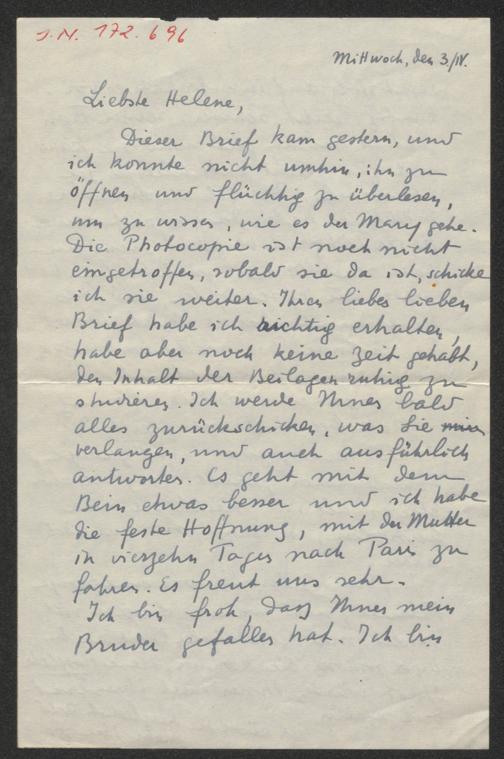 J.N. 172.696
Mittwoch, den 3/IV.
Liebste Helene,
Dieser Brief kam gestern, und
ich konnte nicht umhin, ihn zu
öffnen und flüchtig zu überlesen,
um zu wissen, wie es der Mary gehe.
Die Photocopie ist noch nicht
eingetroffen, sobald sie da ist, schicke
ich sie weiter. Ihren lieben lieben
Brief habe ich richtig erhalten,
habe aber noch keine Zeit gehabt,
den Inhalt der Beilagen ruhig zu
studieren. Ich werde Ihnen bald
alles zurückschicken, was Sie
verlangen, und auch ausführlich
antworten. Es geht mit dem
Bein etwas besser und ich habe
die feste Hoffnung, mit der Mutter
in vierzehn Tagen nach Paris zu
fahren. Es freut uns sehr.
Ich bin froh, dass Ihnen mein
Bruder gefallen hat. Ich bin